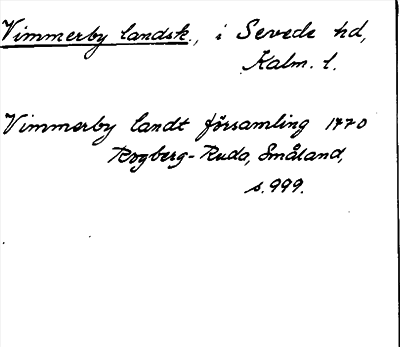 Vimmerby landsk., i Sevede hd,
Kalm. l.
Vimmerby landt församling 1770
Rogberg-Ruda, Småland,
s. 999.